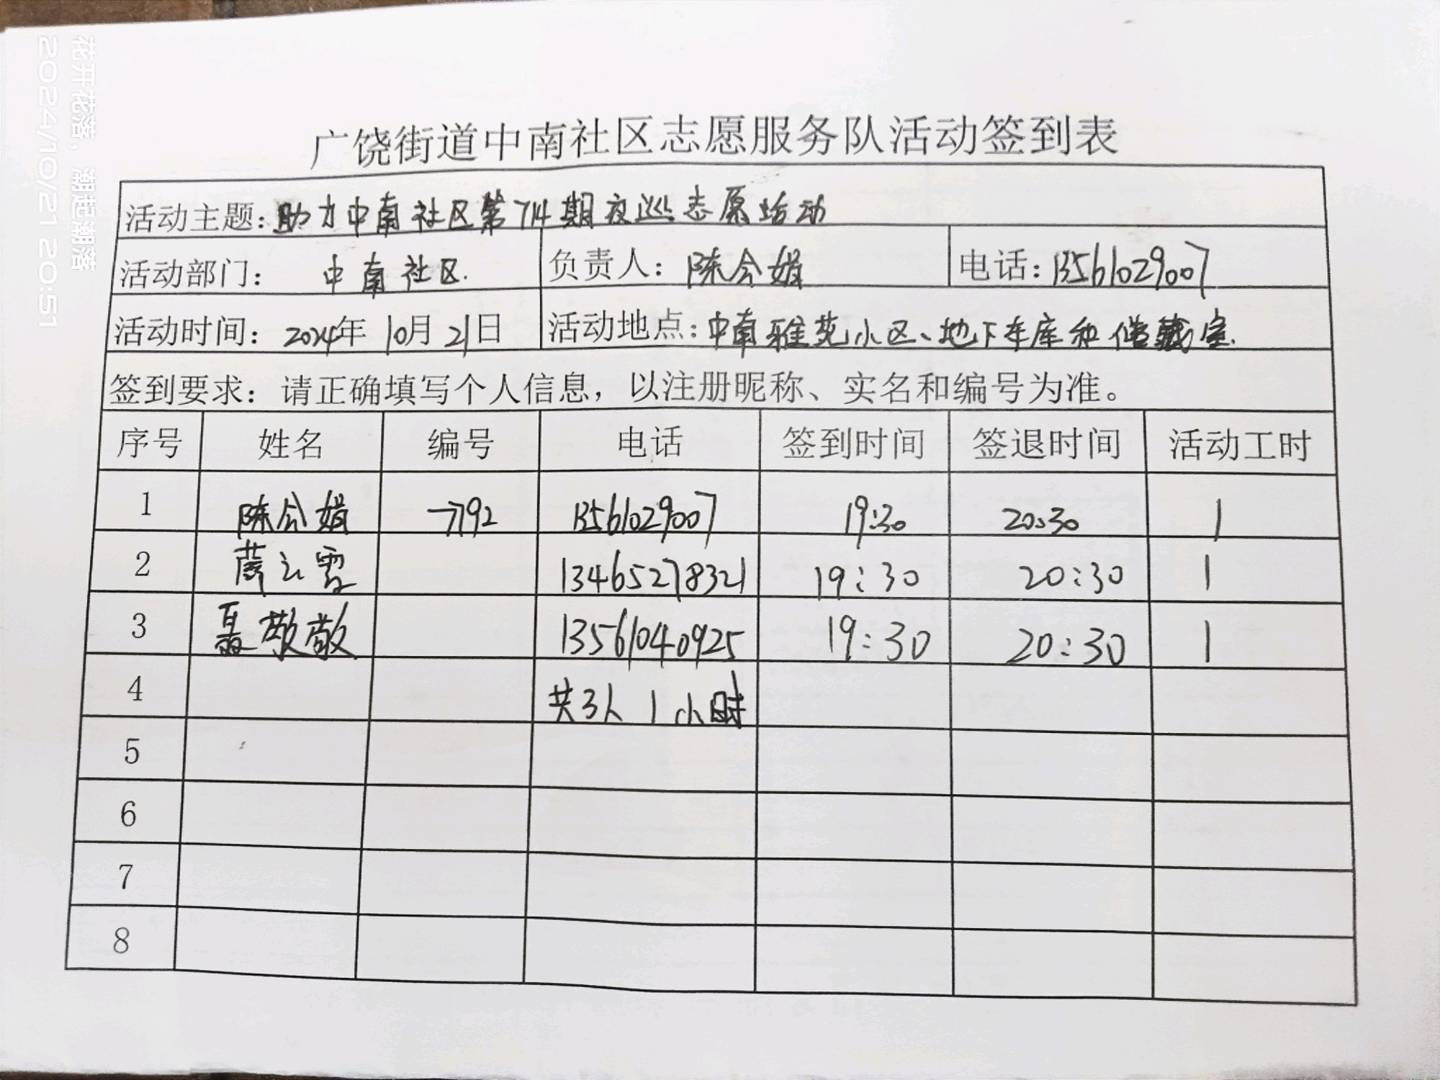 花开花落，潮起潮落
2024/10/21 20:51
广饶街道中南社区志愿服务队活动签到表
活动主题：助力中南社区第714期夜巡志愿活动
活动部门： 中南社区 负责人：陈会娟 电话：13561029007
活动时间：2024年10月21日 活动地点：中南雅苑小区、地下车库和储藏室
签到要求：请正确填写个人信息，以注册昵称、实名和编号为准。
序号 姓名 编号 电话 签到时间 签退时间 活动工时
1 陈会娟 13561029007 19:30 20:30 1
2 13465278321 19:30 20:30 1
3 聂敬敬 13561040925 19:30 20:30 1
4 共3人 1小时
5
6
7
8